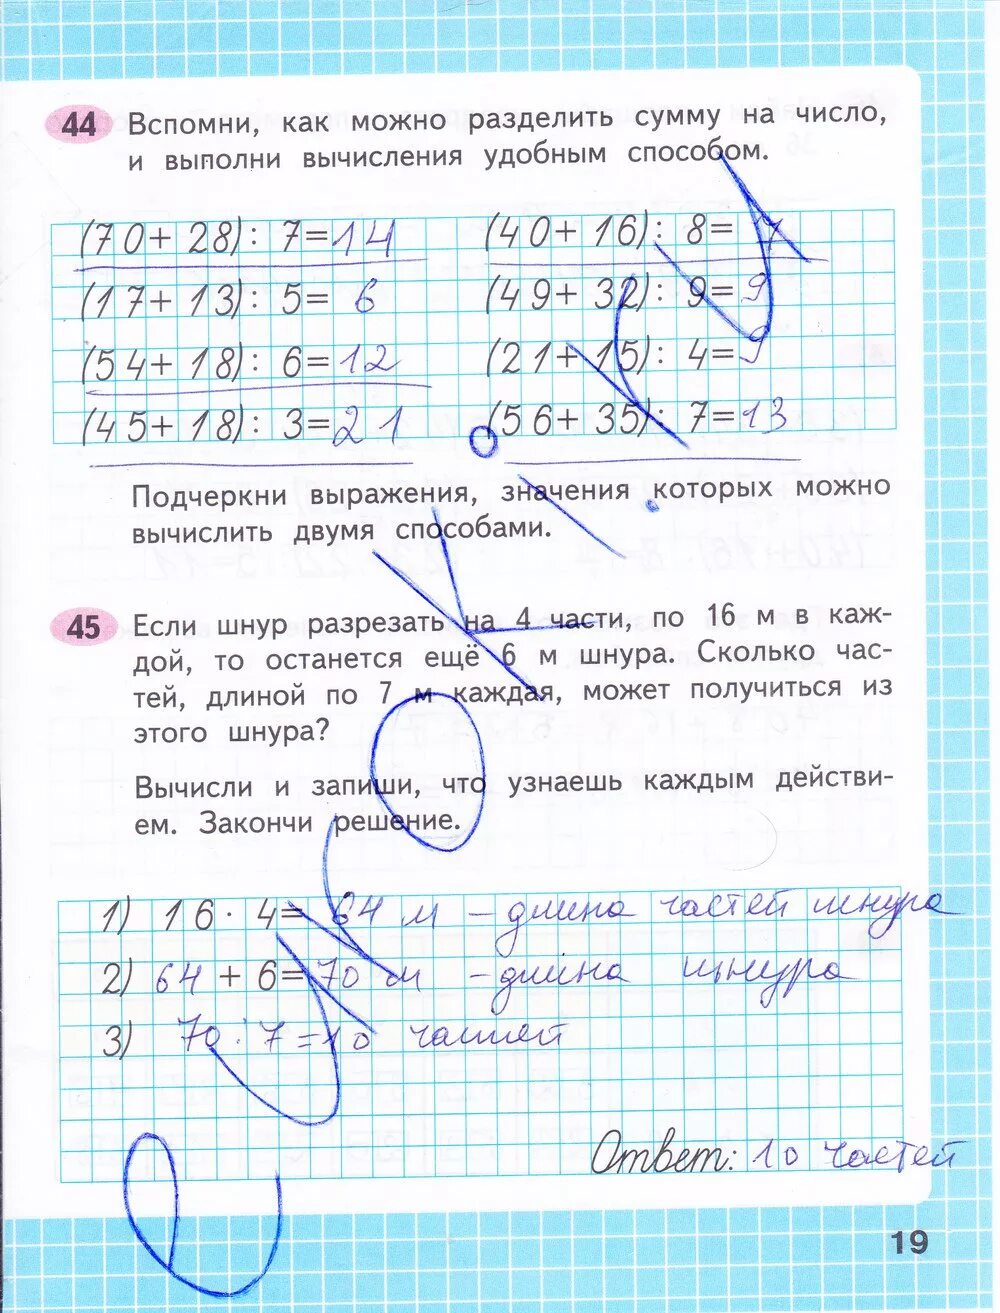 44 Вспомни, как можно разделить сумму на число,
и выполни вычисления удобным способом.
(70+ 28): 7=14 (40+ 16): 8= 7
(17+ 13): 5= 6 (49+ 32): 9=9
(54+ 18): 6=12 (21+ 15): 4=9
(45+ 18): 3=21 (56+ 35): 7=13
Подчеркни выражения, значения которых можно
вычислить двумя способами.
45 Если шнур разрезать на 4 части, по 16 м в каж-
дой, то останется ещё 6 м шнура. Сколько час-
тей, длиной по 7 м каждая, может получиться из
этого шнура?
Вычисли и запиши, что узнаешь каждым действи-
ем. Закончи решение.
1) 16 · 4= 64 м – длина частей шнура
2) 64 + 6=70 м – длина шнура
3) 70 : 7 = 10 частей
Ответ: 10 частей
19